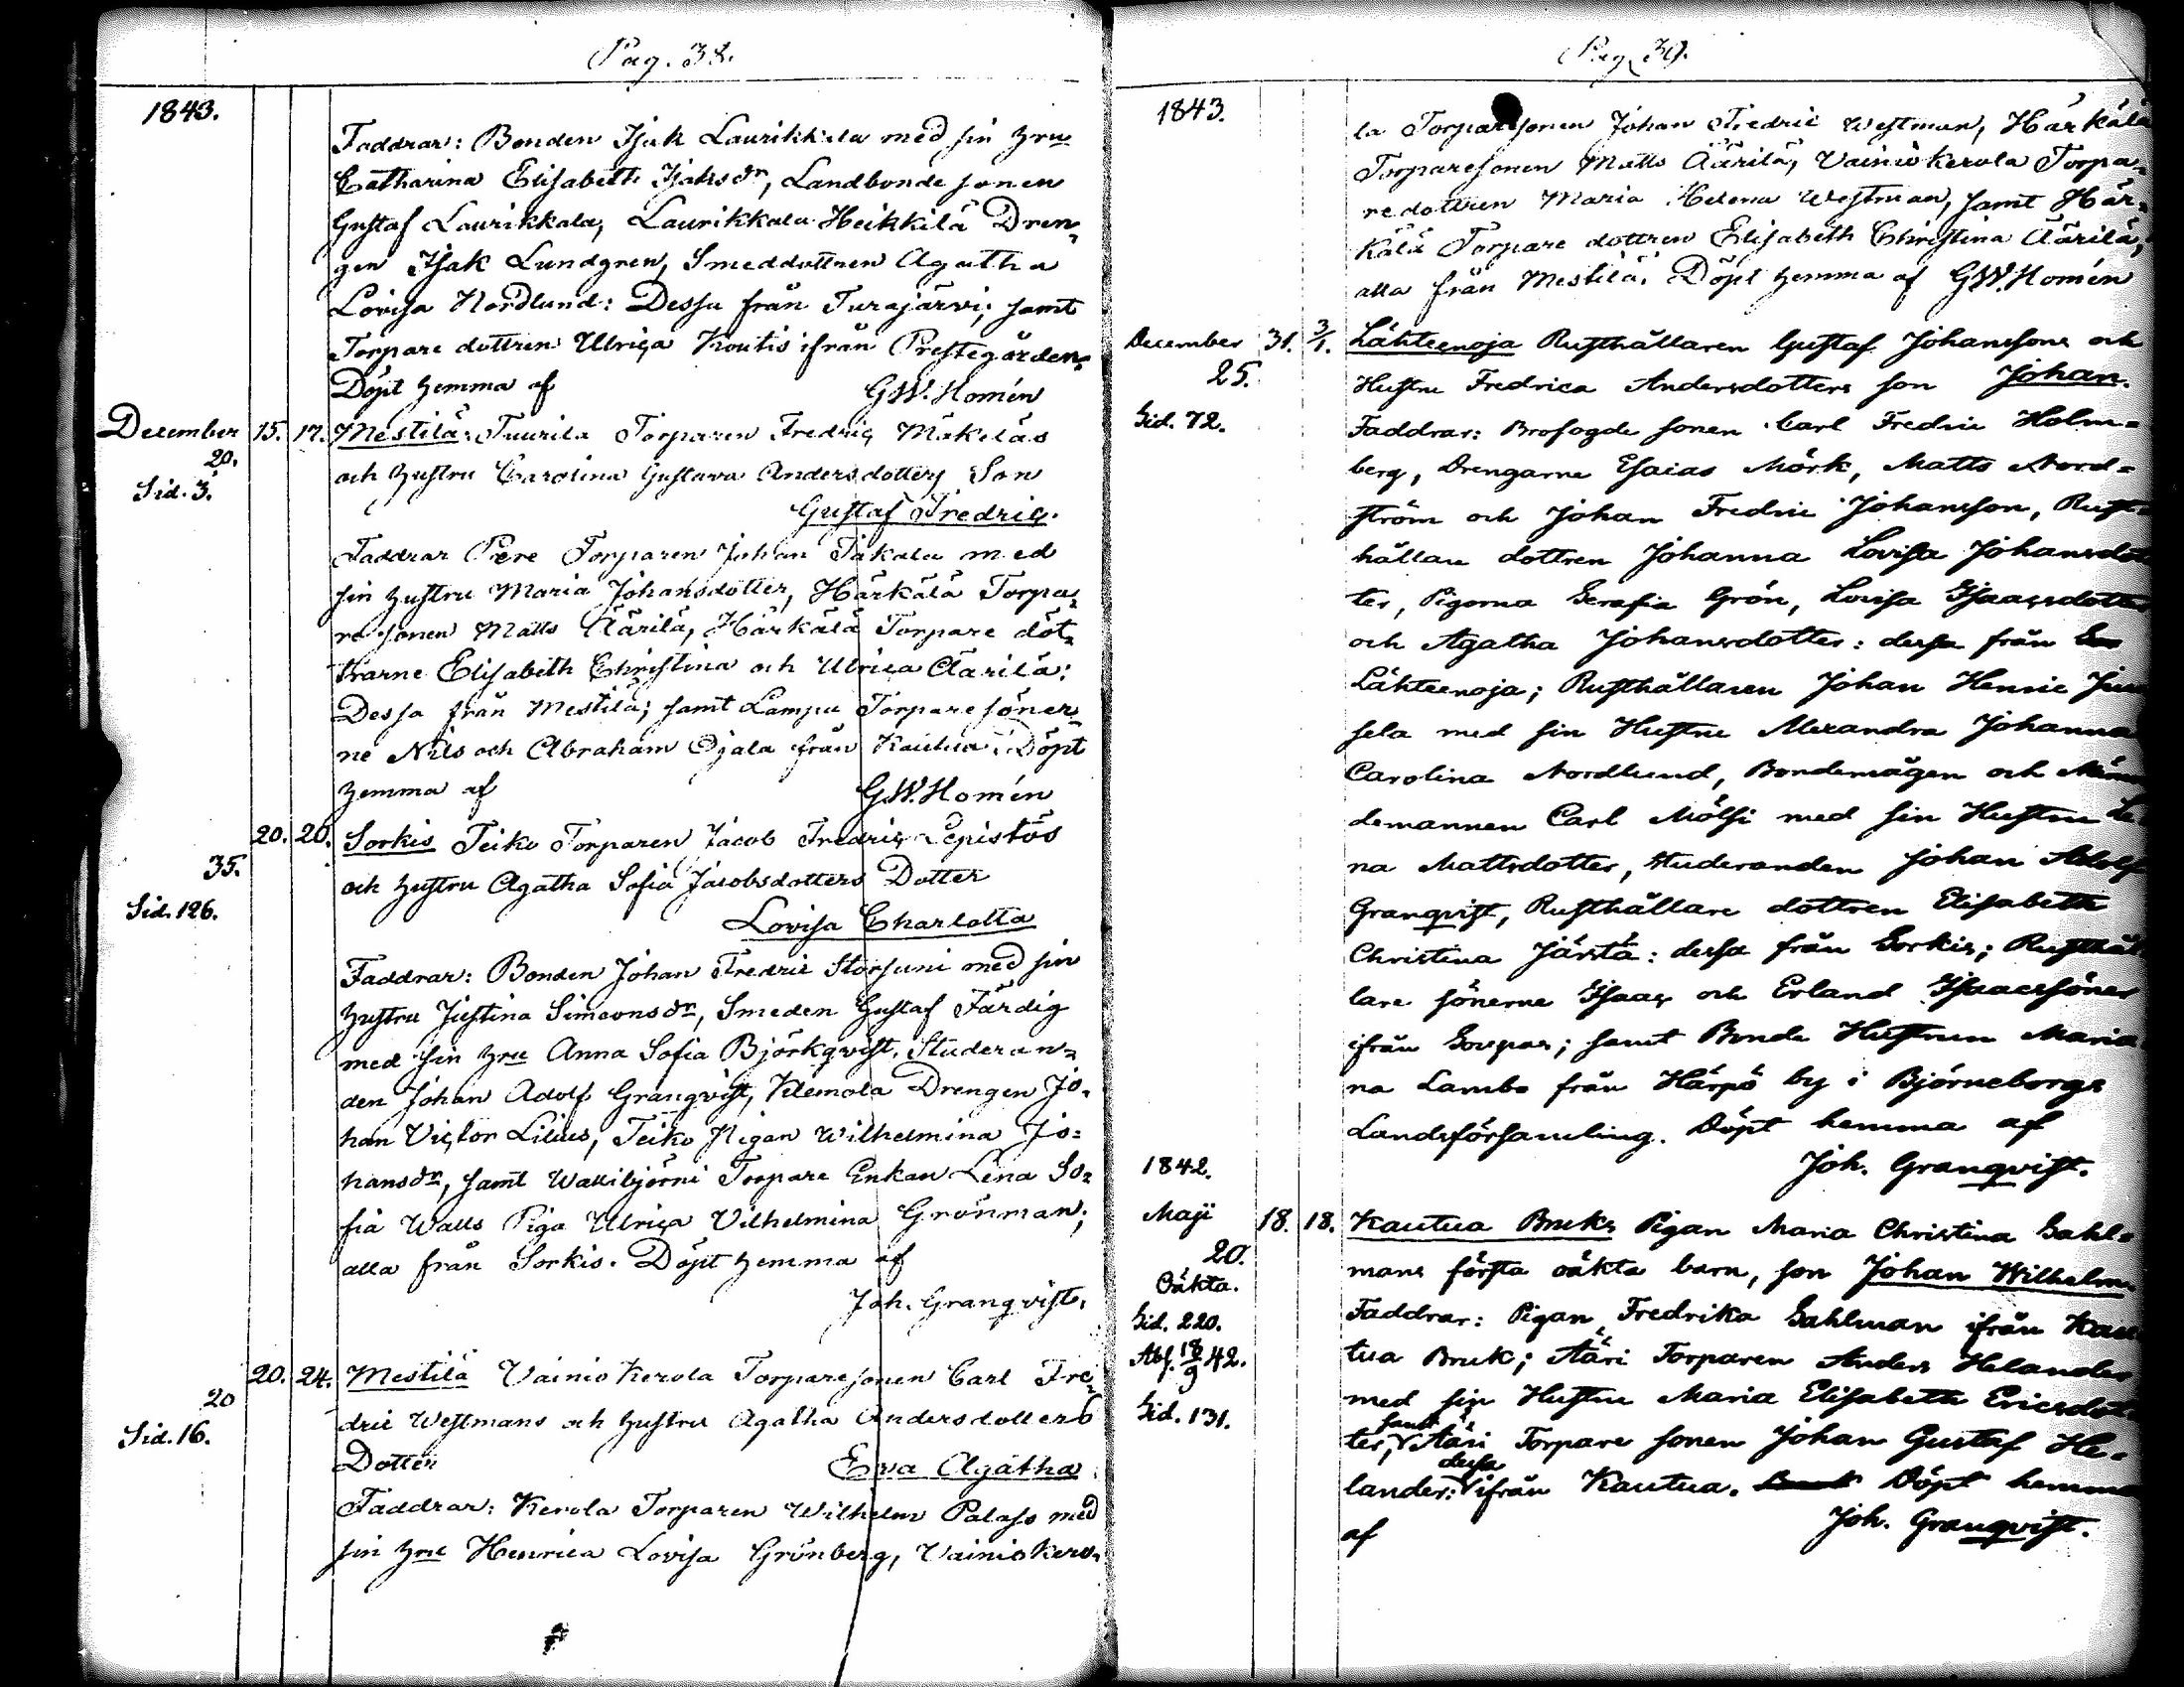 Pag. 38.
1843.
Faddrar: Bonden Isak Laurikkala med sin hru
Catharina Elisabeth Isaksdr, Landbonde sonen
Gustaf Laurikkala, Laurikkala Heikkilä Dren,
gen Isak Lundgren, Smeddottren Agatha
Lovisa Nordlund: Dessa från Turajärvi; samt
Torpare dottren Ulrica Koutis ifrån Prestegården.
Döpt hemma af G.W. Homén
December 15. 17. Mestilä: Tuurila Torparen Fredric Mäkeläs
20.
och hustru Carolina Gustava Andersdotters Son
Sid. 3.
Gustaf Fredric.
Faddrar Pere Torparen Johan Takala med
sin hustru Maria Johansdotter, Härkälä Torpa,
re sonen Matts Äärilä, Härkälä Torpare döt,
trarne Elisabeth Christina och Ulrica Äärilä:
Dessa från Mestilä; samt Lampu Torparesöner,
ne Nils och Abraham Ojala från Kautua. Döpt
hemma af G.W. Homén
20. 20. Sorkis Teiko Torparen Jacob Fredric Lepistös
35.
och hustru Agatha Sofia Jacobsdotters Dotter
Sid. 126.
Lovisa Charlotta
Faddrar: Bonden Johan Fredric Storsuni med sin
hustru Justina Simeonsdr, Smeden Gustaf Färdig
med sin hru Anna Sofia Björkqvist, Studeran=
den Johan Adolf Granqvist, Klemola Drengen Jo,
han Victor Lilius, Teiko Pigan Wilhelmina Jo=
hansdr, samt Wallibjörni Torpare Enkan Lena So=
fia Walls Piga Ulrica Vilhelmina Grönman;
alla från Sorkis. Döpt hemma af
Joh. Granqvist.
20. 24. Mestilä Vainio Kerola Torparesonen Carl Fre,
20
dric Westmans och hustru Agatha Andersdotters
Sid. 16.
Dotter Eva Agatha
Faddrar: Kerola Torparen Wilhelm Palass med
sin hru Henrica Lovisa Grönberg, Vainiokero,
Pag. 39.
1843.
la Torparesonen Johan Fredric Westman, Härkälä
Torparesonen Matts Äärilä, Vainiokerola Torpa,
redottren Maria Helena Westman, samt Här,
kälä Torpare dottren Elisabeth Christina Äärilä,
alla från Mestilä. Döpt hemma af G.W. Homén
December 31. 3/1. Lähteenoja Rusthållaren Gustaf Johanssons och
25.
Hustru Fredrica Andersdotters son Johan.
Sid. 72.
Faddrar: Brofogde sonen Carl Fredric Holm=
berg, Drengarne Esaias Mörk, Matts Nord=
ström och Johan Fredric Johansson, Rust=
hållare dottren Johanna Lovisa Johansdot
ter, Pigorna Serafia Grön, Lovisa Isaacsdotter
och Agatha Johansdotter: dessa från
Lähteenoja; Rusthållaren Johan Henric
sela med sin Hustru Alexandra Johanna
Carolina Nordlund, Bondemågen och Nämn
demannen Carl Mölsi med sin Hustru Le
na Mattsdotter, Studeranden Johan Adolf
Granqvist, Rusthållare dottren Elisabeth
Christina Järstä: dessa från Sorkis; Rusthål
lare sönerne Isaac och Erland Isaacssöner
ifrån; samt Bonde Hustrun Maria
na Lambo från Härpö by i Björneborgs
Landsförsamling. Döpt hemma af
Joh. Granqvist.
1842.
Maji 18. 18. Kautua Bruks Pigan Maria Christina Sahl=
20.
mans första oäkta barn, son Johan Wilhelm.
Oäkta.
Faddrar: Pigan Fredrika Sahlman ifrån Kau
Sid. 220.
tua Bruk; Ääri Torparen Anders Helander
Abs. 18/9 42.
med sin Hustru Maria Elisabeth Ericsdot=
Sid. 131.
ter, samt Ääri Torpare sonen Johan Gustaf He=
lander: dessa ifrån Kautua. Döpt hemma
af Joh. Granqvist.